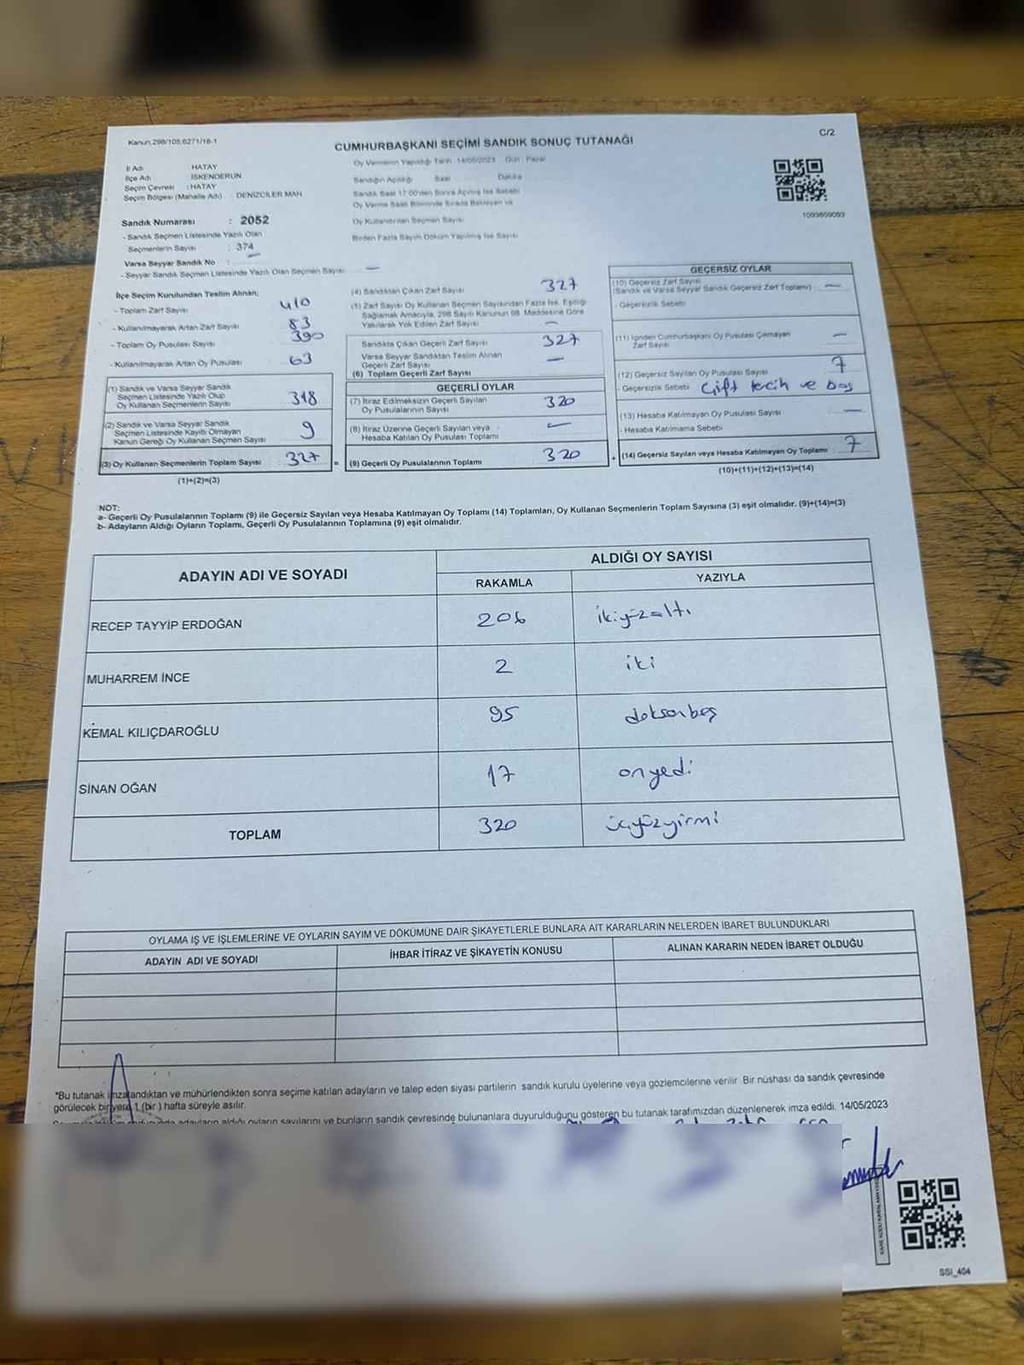 Kanun:298/105,6271/18-1
C/2
CUMHURBAŞKANI SEÇİMİ SANDIK SONUÇ TUTANAĞI
İl Adı : HATAY
İlçe Adı : İSKENDERUN
Seçim Çevresi : HATAY
Seçim Bölgesi (Mahalle Adı) : DENİZCİLER MAH
Sandık Numarası : 2052
- Sandık Seçmen Listesinde Yazılı Olan
Seçmenlerin Sayısı : 374
Varsa Seyyar Sandık No : —
- Seyyar Sandık Seçmen Listesinde Yazılı Olan Seçmen Sayısı : —
Oy Vermenin Yapıldığı Tarih 14/05/2023 Gün : Pazar
Sandığın Açıldığı Saat Dakika
Sandık Saat 17:00'den Sonra Açılmış İse Sebebi
Oy Kullandırılan Seçmen Sayısı
Birden Fazla Sayım Döküm Yapılmış İse Sayısı
1093809093
İlçe Seçim Kurulundan Teslim Alınan;
- Toplam Zarf Sayısı 410
- Kullanılmayarak Artan Zarf Sayısı 83
- Toplam Oy Pusulası Sayısı 390
- Kullanılmayarak Artan Oy Pusulası 63
(1) Sandık ve Varsa Seyyar Sandık
Seçmen Listesinde Yazılı Olup
Oy Kullanan Seçmenlerin Sayısı 318
(2) Sandık ve Varsa Seyyar Sandık
Seçmen Listesinde Kayıtlı Olmayan
Kanun Gereği Oy Kullanan Seçmen Sayısı 9
(3) Oy Kullanan Seçmenlerin Toplam Sayısı 327
(1)+(2)=(3)
(4) Sandıktan Çıkan Zarf Sayısı 327
Zarf Sayısı Oy Kullanan Seçmen Sayısından Fazla İse, Eşitliği
Sağlamak Amacıyla, 298 Sayılı Kanunun 98. Maddesine Göre
Yakılarak Yok Edilen Zarf Sayısı —
Sandıkta Çıkan Geçerli Zarf Sayısı 327
Varsa Seyyar Sandıktan Teslim Alınan
Geçerli Zarf Sayısı —
(6) Toplam Geçerli Zarf Sayısı
GEÇERLİ OYLAR
(7) İtiraz Edilmeksizin Geçerli Sayılan
Oy Pusulalarının Sayısı 320
(8) İtiraz Üzerine Geçerli Sayılan veya
Hesaba Katılan Oy Pusulası Toplamı —
(9) Geçerli Oy Pusulalarının Toplamı 320
GEÇERSİZ OYLAR
(10) Geçersiz Zarf Sayısı
(Sandık ve Varsa Seyyar Sandık Geçersiz Zarf Toplamı) —
- Geçersizlik Sebebi
(11) İçinden Cumhurbaşkanı Oy Pusulası Çıkmayan
Zarf Sayısı —
(12) Geçersiz Sayılan Oy Pusulası Sayısı 7
- Geçersizlik Sebebi Çift tecih ve boş
(13) Hesaba Katılmayan Oy Pusulası Sayısı —
- Hesaba Katılmama Sebebi
(14) Geçersiz Sayılan veya Hesaba Katılmayan Oy Toplamı 7
(10)+(11)+(12)+(13)=(14)
NOT:
a- Geçerli Oy Pusulalarının Toplamı (9) ile Geçersiz Sayılan veya Hesaba Katılmayan Oy Toplamı (14) Toplamları, Oy Kullanan Seçmenlerin Toplam Sayısına (3) eşit olmalıdır. (9)+(14)=(3)
b- Adayların Aldığı Oyların Toplamı, Geçerli Oy Pusulalarının Toplamına (9) eşit olmalıdır.
ADAYIN ADI VE SOYADI
ALDIĞI OY SAYISI
RAKAMLA YAZIYLA
RECEP TAYYİP ERDOĞAN 206 ikiyüzaltı
MUHARREM İNCE 2 iki
KEMAL KILIÇDAROĞLU 95 doksanbeş
SİNAN OĞAN 17 onyedi
TOPLAM 320 üçyüzyirmi
OYLAMA İŞ VE İŞLEMLERİNE VE OYLARIN SAYIM VE DÖKÜMÜNE DAİR ŞİKAYETLERLE BUNLARA AİT KARARLARIN NELERDEN İBARET BULUNDUKLARI
ADAYIN ADI VE SOYADI İHBAR İTİRAZ VE ŞİKAYETİN KONUSU ALINAN KARARIN NEDEN İBARET OLDUĞU
"Bu tutanak imzalandıktan ve mühürlendikten sonra seçime katılan adayların ve talep eden siyasi partilerin sandık kurulu üyelerine veya gözlemcilerine verilir. Bir nüshası da sandık çevresinde
görülecek bir yere 1 (bir) hafta süreyle asılır.
adayların aldığı oyların sayılarını ve bunların sandık çevresinde bulunanlara duyurulduğunu gösteren bu tutanak tarafımızdan düzenlenerek imza edildi. 14/05/2023
SSI_404